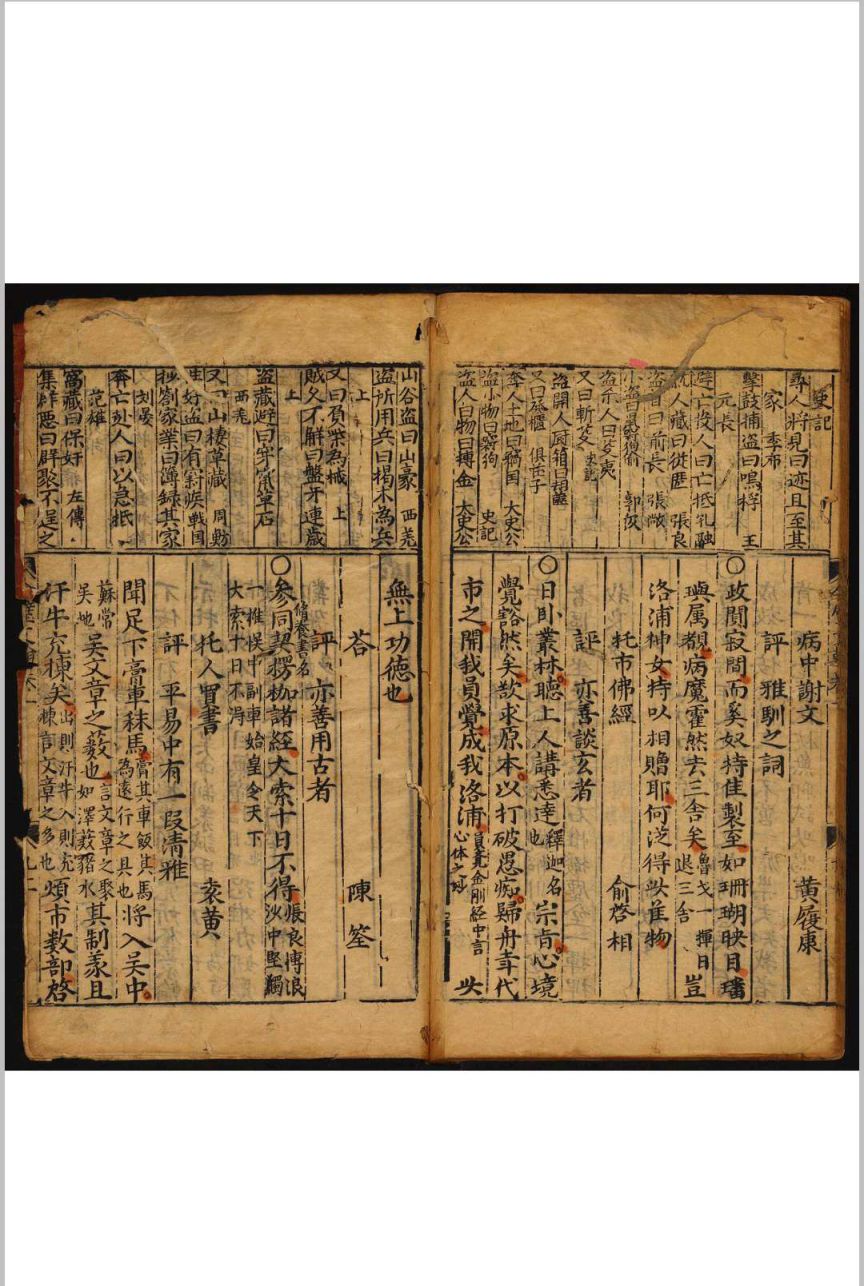 史記
尋人將見曰迹且至其
家 季布
擊鼓捕盜曰鳴桴 王
元長
避亡投人曰亡抵 孔融
就人藏曰從匿 張良
盜首曰前長 張敞
小盜曰鼠竊狗偷 郭伋
盜杀人曰芟夷
又曰斬芟 史記
盜開人厨箱曰胠篋
又曰胠櫃 俱莊子
奪人土地曰竊国 太史公
盜小物曰竊狗 史記
盜人曰物曰搏金 太史公
病中謝文 黃履康
評 雅馴之詞
○政閴寂間而奚奴持隹製至如珊瑚映目璠
璵属覩病魔霍然去三舍矣魯戈一揮日
退三舍豈
洛浦神女持以相贈耶何泛得㳄隹物
托市佛經 俞啓相
評 亦善談玄者
○日卧叢林聽上人講悉達釋迦名
也宗旨心境
覺豁然矣欬求原本以打破愚痴歸舟幸代
市之開我員覺成我洛浦員覺金剛經中言
心体之妙㳄
山谷盜曰山豪 西羌
盜折用兵曰楬木為兵
上
又曰負柴為械 上
賊久不觧曰盤牙連歲
上
盜藏避曰穿窬草石
西羌
又曰山棲草藏 周魴
性好盜曰有劉疾 戰国
抄劉家業曰簿録其家
刘晏
奔亡赴人曰以急抵
范雎
窩藏曰保奸 左傳
集群悪曰群聚不逞之
無上功德也
荅 陳筌
評 亦善用古者
○參同契修養書名楞枷諸經大索十日不得張良博浪
沙中堅觸
一推悞中副車始皇令天下
大索十日不淂
托人買書 袁黃
評 平易中有一叚清雅
聞足下膏車秣馬膏其車飯其馬
為遠行之具也將入吴中
蘇常
吴地吴文章之薮也言文章之聚
如澤薮蓄水其制義且
汗牛充棟矣出則汗牛入則充
棟言文章之多也煩市数部啓